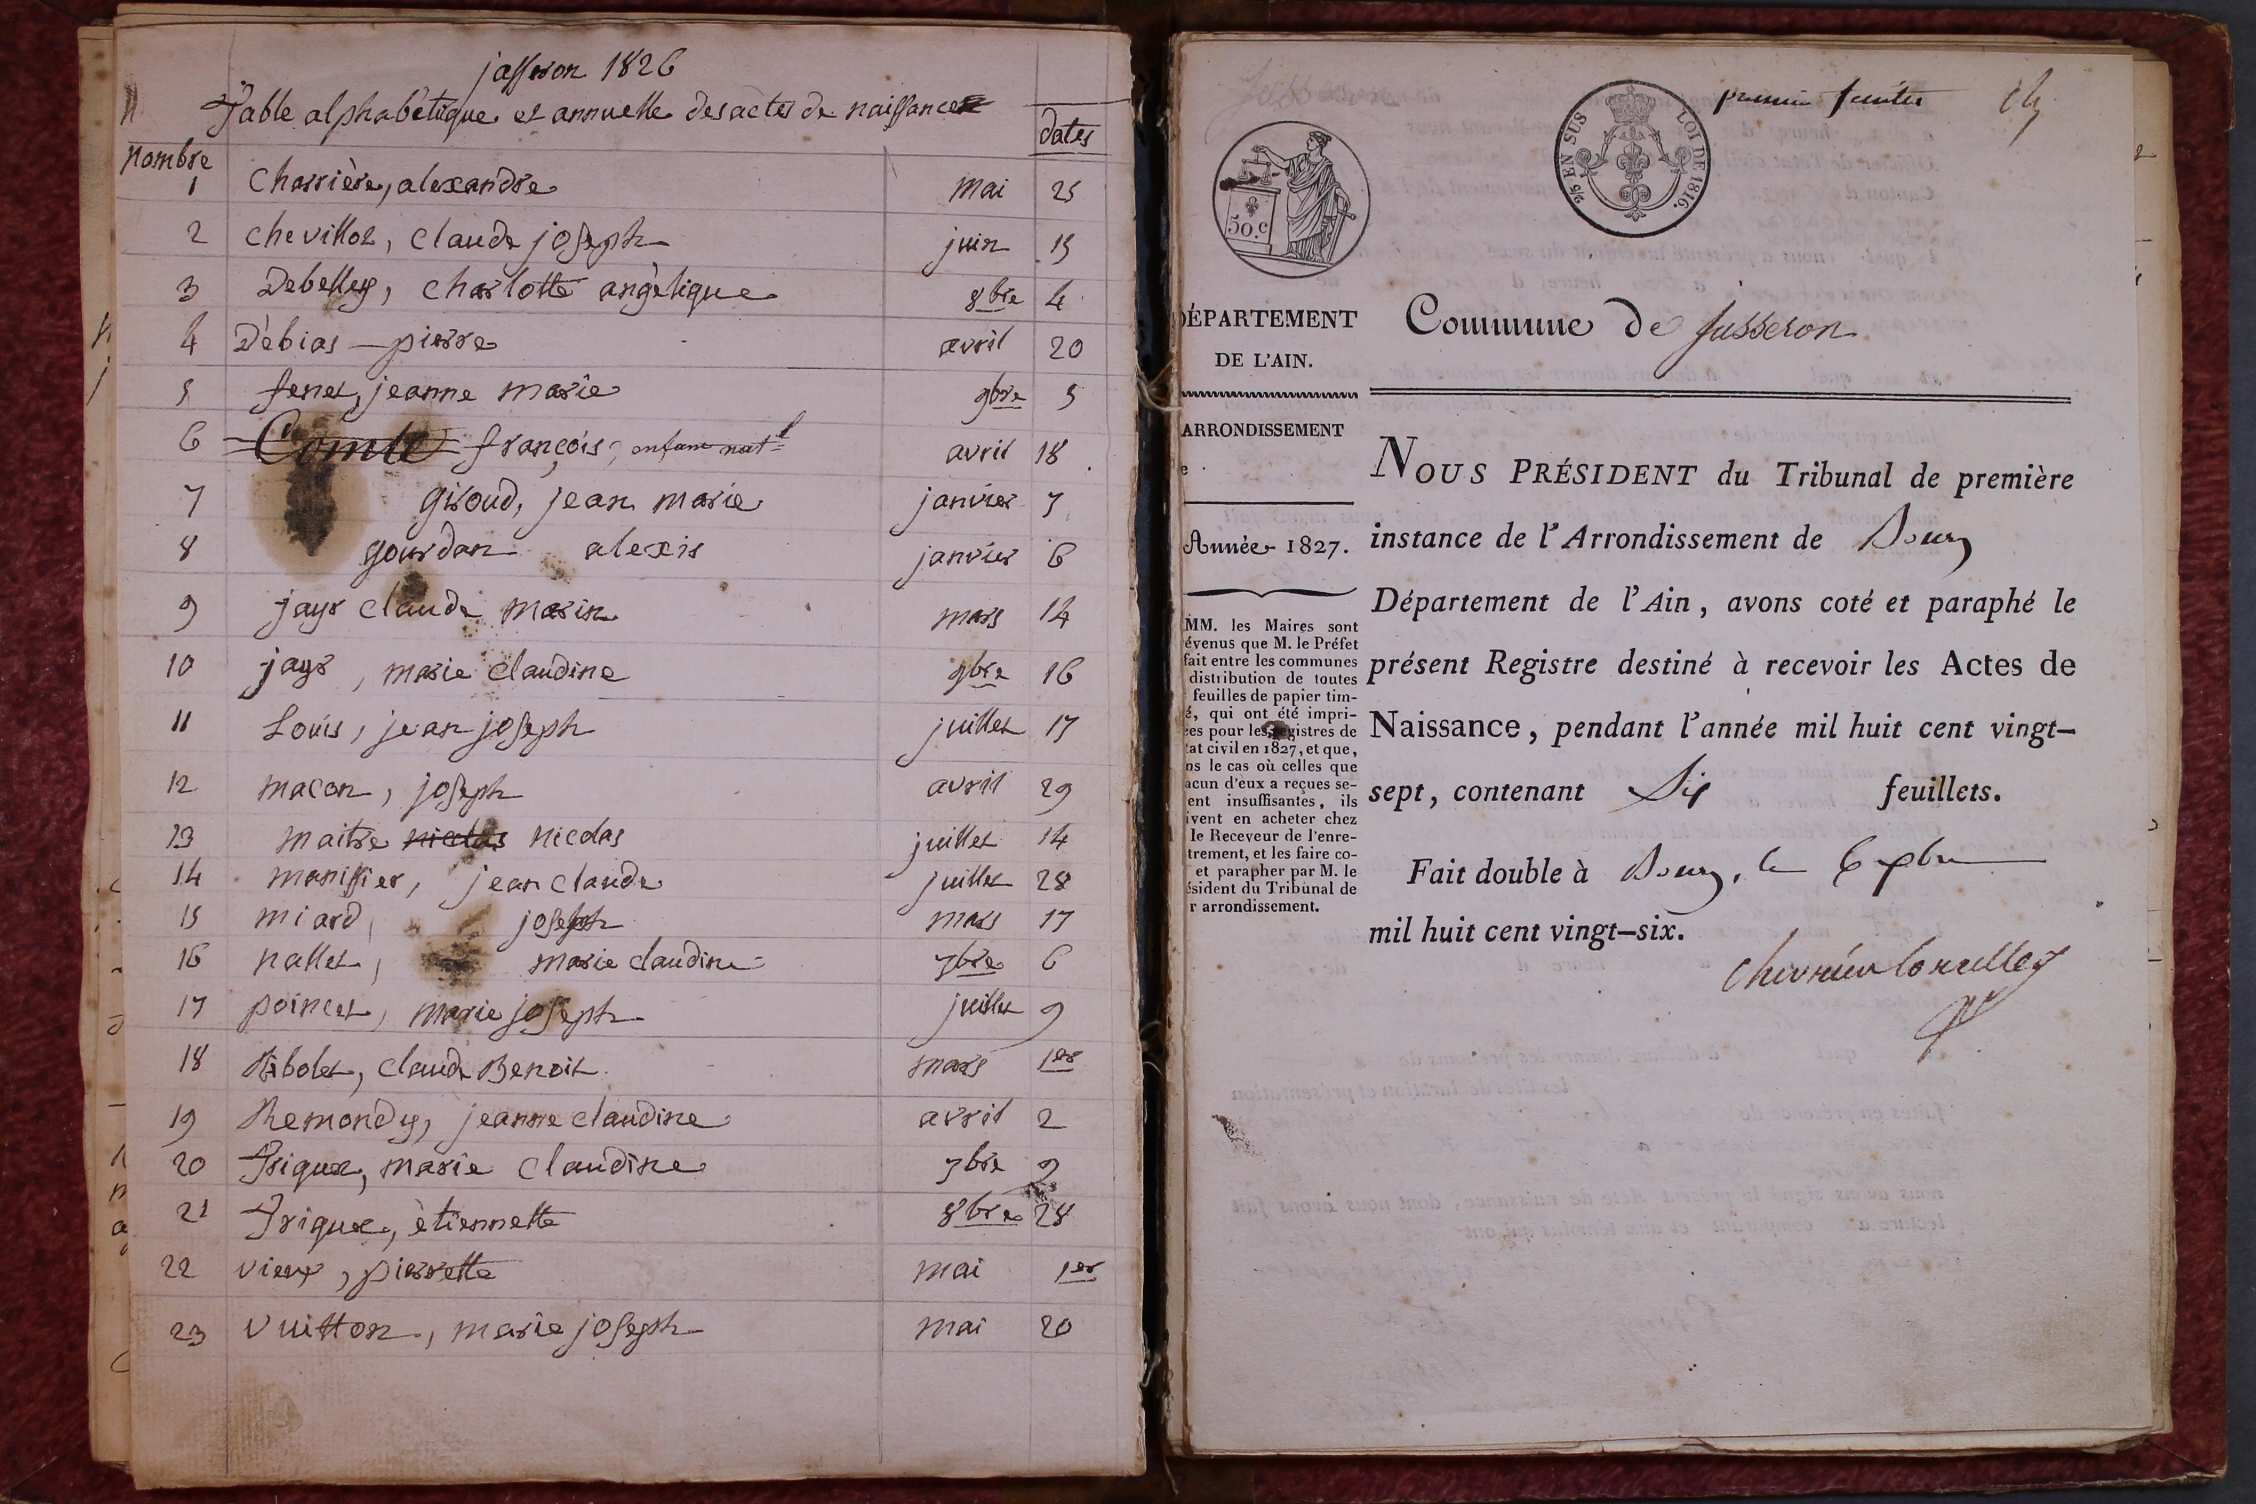 jasseron 1826
Table alphabètique et annuelle des actes de naissance
nombre
dates
1 Charrière, alexandre mai 25
2 chevillot, claude joseph juin 15
3 Debelley, charlotte angèlique 8bre 4
4 Débias - pierre avril 20
5 fenet, jeanne marie 9bre 5
6 Comte françois, enfant natl avril 18
7 giroud, jean marie janvier 7
8 gourdan alexis janvier 6
9 jayr claude marin mars 14
10 jayr, marie claudine 9bre 16
11 Louis, jean joseph juillet 17
12 macon, joseph avril 29
13 maitre nicolas nicolas juillet 14
14 manissier, jean claude juillet 28
15 miard, joseph mars 17
16 nallet, marie claudine 7bre 6
17 poincet, marie joseph juillet 9
18 Ribolet, claude Benoit mars 1er
19 Remondy, jeanne claudine avril 2
20 Triquet, marie claudine 7bre 9
21 Triquet, ètiennette 8bre 28
22 vieux, pierrette mai 1er
23 vuitton, marie joseph mai 20
premier feuillet
2/5 EN SUS LOI DE 1816.
50.c
DÉPARTEMENT
DE L'AIN.
ARRONDISSEMENT
e
Année 1827.
MM. les Maires sont
évenus que M. le Préfet
fait entre les communes
distribution de toutes
feuilles de papier tim-
é, qui ont été impri-
es pour les registres de
tat civil en 1827, et que,
ns le cas où celles que
acun d'eux a reçues se-
ent insuffisantes, ils
ivent en acheter chez
le Receveur de l'enre-
trement, et les faire co-
et parapher par M. le
ésident du Tribunal de
r arrondissement.
Commune de Jasseron
NOUS PRÉSIDENT du Tribunal de première
instance de l'Arrondissement de Bourg
Département de l'Ain, avons coté et paraphé le
présent Registre destiné à recevoir les Actes de
Naissance, pendant l'année mil huit cent vingt-
sept, contenant Six feuillets.
Fait double à Bourg, le 6 xbre
mil huit cent vingt-six.